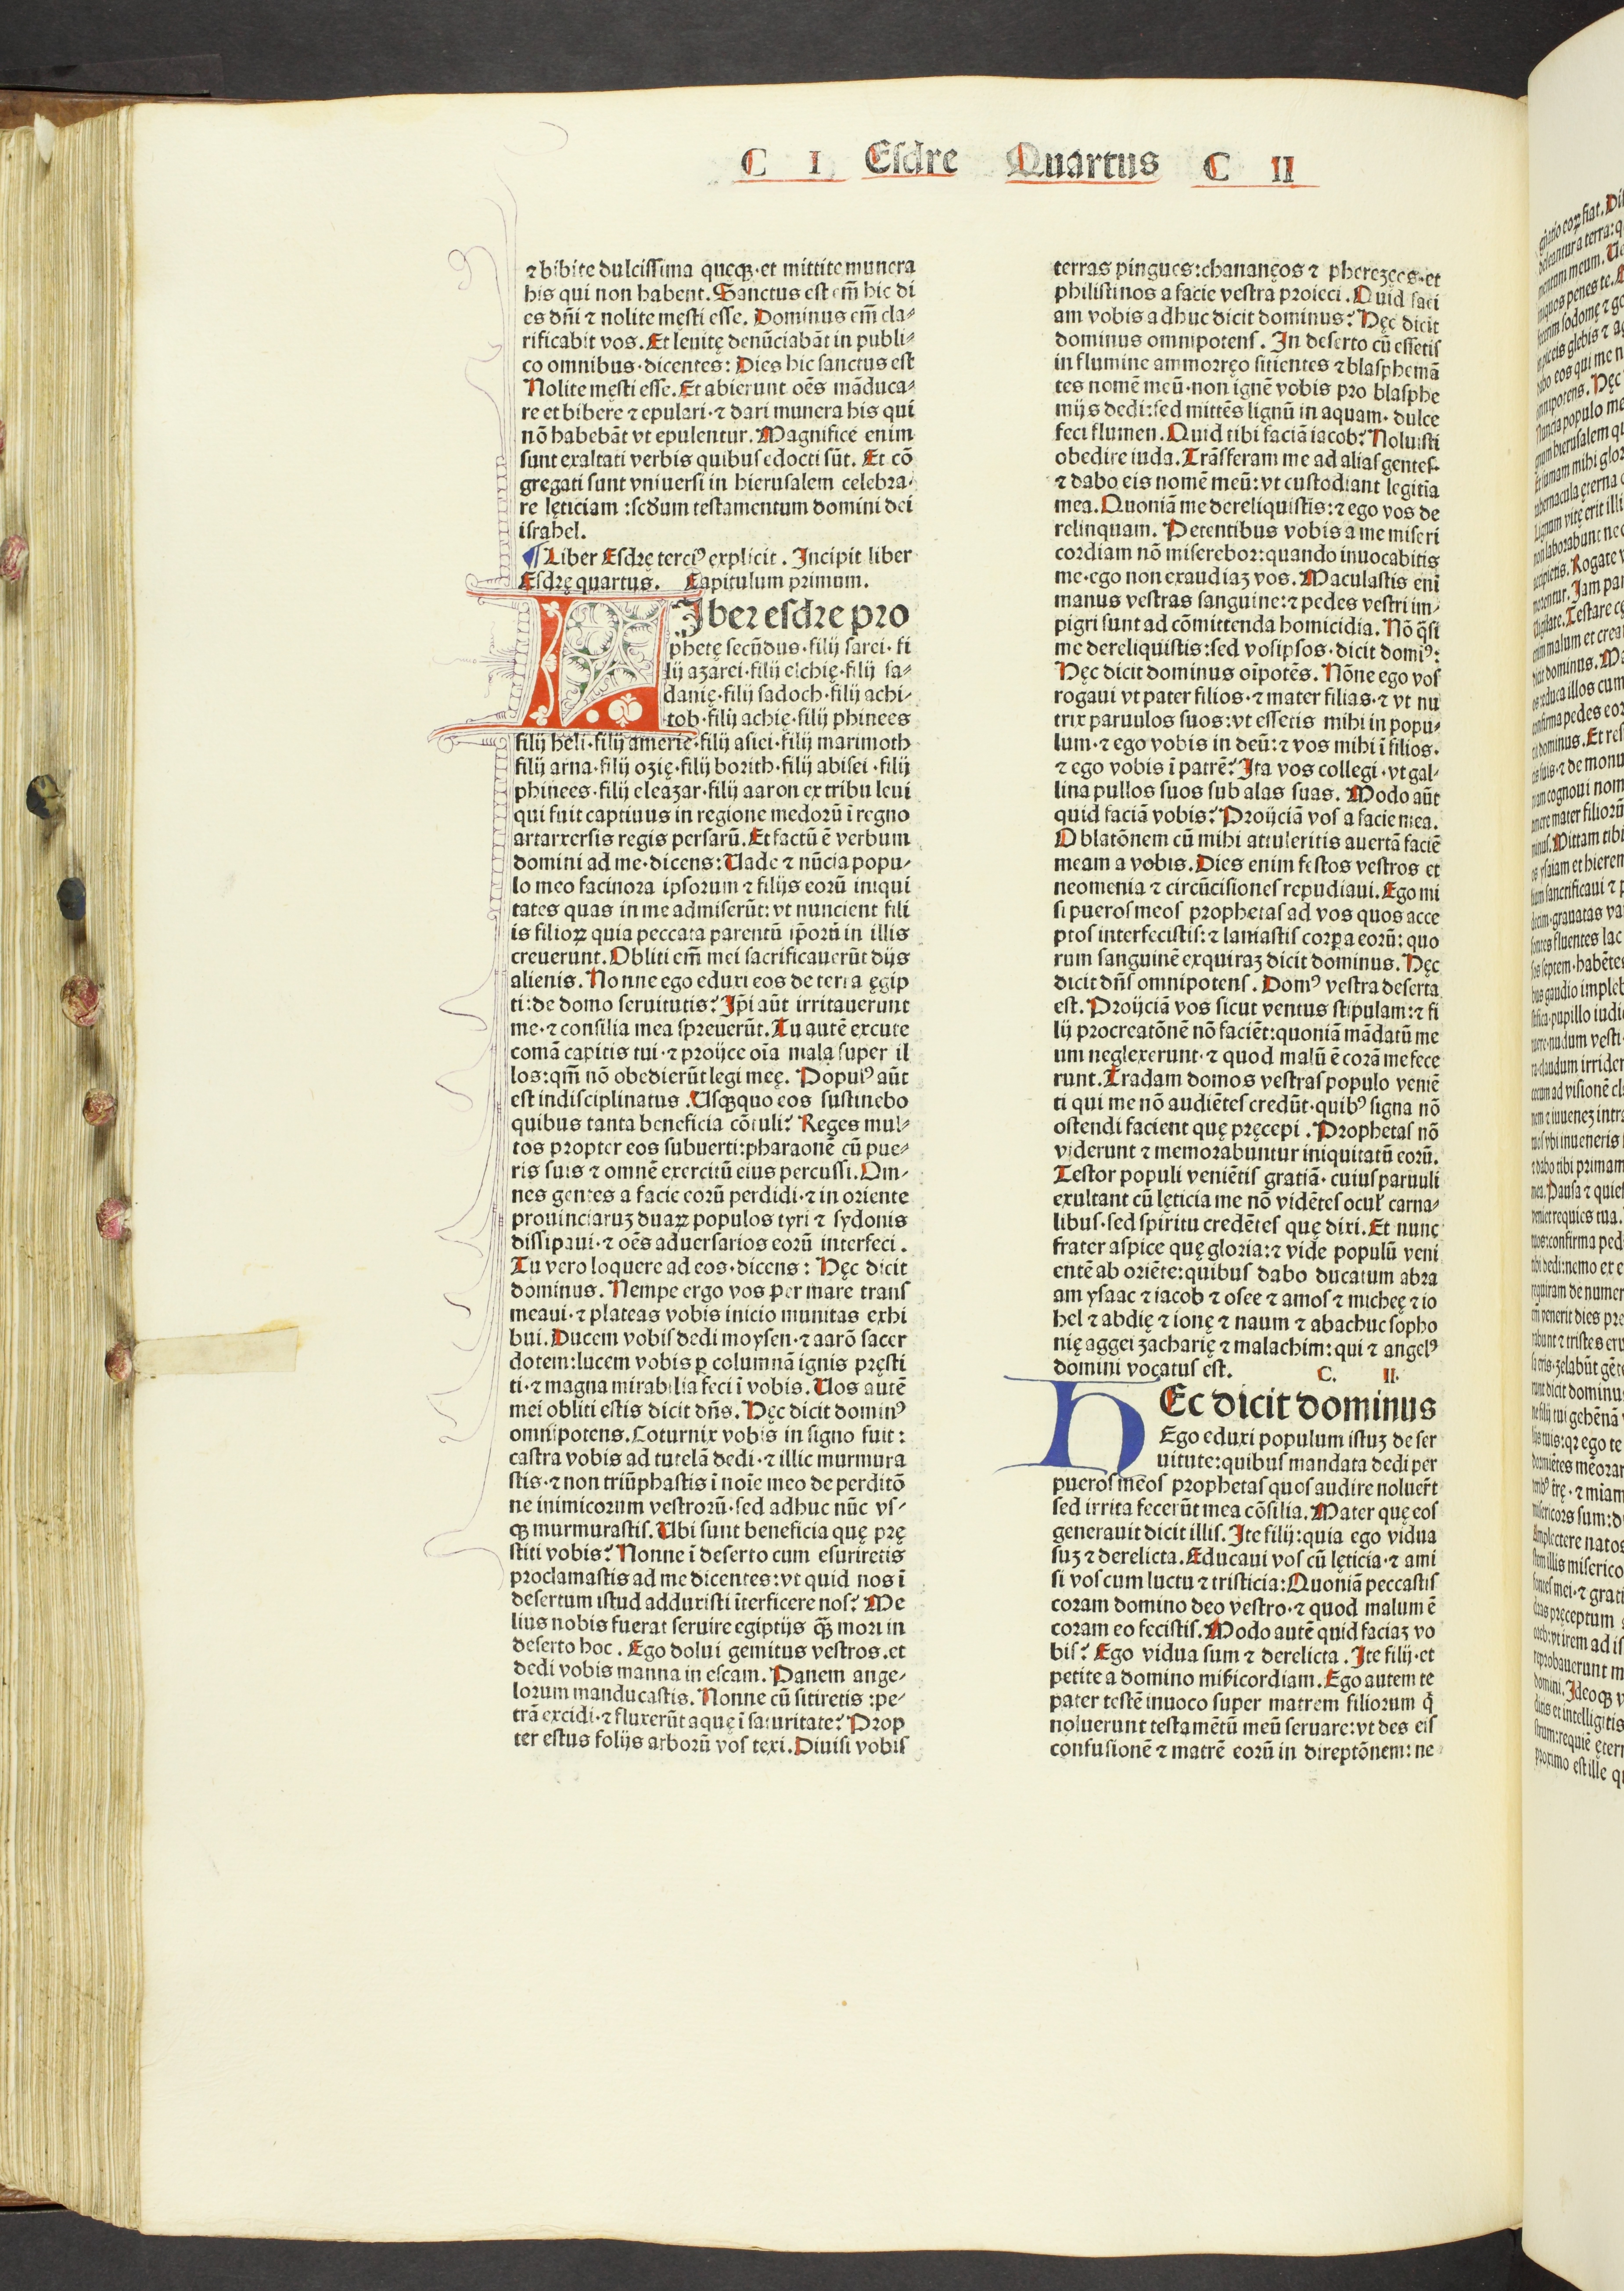 C I Esdre Quartus C II
⁊ bibite dulcissima queqꝫ·et mittite munera
his qui non habent. Sanctus est em̄ hic di
es dn̄i ⁊ nolite męsti esse. Dominus em̄ cla⸗
rificabit vos. Et leuitę denūciabāt in publi⸗
co omnibus·dicentes: Dies hic sanctus est
Nolite męsti esse. Et abierunt oēs māduca⸗
re et bibere ⁊ epulari·⁊ dari munera his qui
nō habebāt vt epulentur. Magnifice enim
sunt exaltati verbis quibus edocti sūt. Et cō
gregati sunt vniuersi in hierusalem celebra⸗
re lęticiam :scd̄um testamentum domini dei
israhel.
¶ Liber Esdrę tercꝰ explicit . Incipit liber
Esdrę quartus. Capitulum primum.
LIber esdre pro
phetę secūdus·filij sarei·fi
lij azarei·filij elchię·filij sa⸗
danię·filij sadoch·filij achi⸗
tob·filij achię·filij phinees
filij heli·filij amerię·filij asiei·filij marimoth
filij arna·filij ozię·filij borith·filij abisei·filij
phinees·filij eleazar·filij aaron ex tribu leui
qui fuit captiuus in regione medorū ī regno
artarxersis regis persarū. Et factū ē verbum
domini ad me·dicens: Uade ⁊ nūcia popu⸗
lo meo facinora ipsorum ⁊ filijs eorū iniqui
tates quas in me admiserūt: vt nuncient fili
is filioꝝ quia peccata parentū ip̄orū in illis
creuerunt. Obliti em̄ mei sacrificauerūt dijs
alienis. Nonne ego eduxi eos de terra ęgip
ti:de domo seruitutis? Ip̄i aūt irritauerunt
me·⁊ consilia mea spreuerūt. Tu autē excute
comā capitis tui·⁊ proijce oīa mala super il
los:qm̄ nō obedierūt legi meę. Populꝰ aūt
est indisciplinatus .Usqꝫquo eos sustinebo
quibus tanta beneficia cōtuli? Reges mul⸗
tos propter eos subuerti:pharaonē cū pue⸗
ris suis ⁊ omnē exercitū eius percussi. Om⸗
nes gentes a facie eorū perdidi·⁊ in oriente
prouinciaruꝫ duaꝝ populos tyri ⁊ sydonis
dissipaui·⁊ oēs aduersarios eorū interfeci .
Tu vero loquere ad eos·dicens: Hęc dicit
dominus. Nempe ergo vos per mare trans
meaui·⁊ plateas vobis inicio munitas exhi
bui. Ducem vobis dedi moysen·⁊ aarō sacer
dotem:lucem vobis ꝑ columnā ignis pręsti
ti·⁊ magna mirabilia feci ī vobis. Uos autē
mei obliti estis dicit dn̄s. Hęc dicit dominꝰ
omnipotens. Coturnix vobis in signo fuit:
castra vobis ad tutelā dedi·⁊ illic murmura
stis·⁊ non triūphastis ī noīe meo de perditō
ne inimicorum vestrorū·sed adhuc nūc vs⸗
qꝫ murmurastis. Ubi sunt beneficia quę prę
stiti vobis? Nonne ī deserto cum esuriretis
proclamastis ad me dicentes:vt quid nos ī
desertum istud adduxisti īterficere nos? Me
lius nobis fuerat seruire egiptijs qꝫ̄ mori in
deserto hoc . Ego dolui gemitus vestros.et
dedi vobis manna in escam. Panem ange⸗
lorum manducastis. Nonne cū sitiretis :pe⸗
trā excidi·⁊ fluxerūt aquę ī saturitate? Prop
ter estus folijs arborū vos texi. Diuisi vobis
terras pingues:chananęos ⁊ pherezęes·et
philistinos a facie vestra proieci . Quid faci
am vobis adhuc dicit dominus? Hęc dicit
dominus omnipotens. In deserto cū essetis
in flumine ammorręo sitientes ⁊ blasphemā
tes nomē meū·non ignē vobis pro blasphe
mijs dedi:sed mittēs lignū in aquam· dulce
feci flumen. Quid tibi faciā iacob? Noluisti
obedire iuda. Trāsferam me ad alias gentes·
⁊ dabo eis nomē meū: vt custodiant legitīa
mea. Quoniā me dereliquistis: ⁊ ego vos de
relinquam. Petentibus vobis a me miseri
cordiam nō miserebor: quando inuocabitis
me·ego non exaudiaꝫ vos. Maculastis eni
manus vestras sanguine:⁊ pedes vestri im⸗
pigri sunt ad cōmittenda homicidia. Nō q̄si
me dereliquistis:sed vosipsos·dicit domiꝰ:
Hęc dicit dominus oīpotēs. Nōne ego vos
rogaui vt pater filios·⁊ mater filias·⁊ vt nu
trix paruulos suos:vt essetis mihi in popu⸗
lum·⁊ ego vobis in deū:⁊ vos mihi ī filios·
⁊ ego vobis ī patrē? Ita vos collegi·vt gal⸗
lina pullos suos sub alas suas. Modo aūt
quid faciā vobis? Proijciā vos a facie mea.
Oblatōnem cū mihi attuleritis auertā faciē
meam a vobis. Dies enim festos vestros et
neomenia ⁊ circūcisiones repudiaui. Ego mi
si pueros meos prophetas ad vos quos acce
ptos interfecistis:⁊ laniastis corpa eorū: quo
rum sanguinē exquiraꝫ dicit dominus. Hęc
dicit dn̄s omnipotens. Domꝰ vestra deserta
est. Proijciā vos sicut ventus stipulam:⁊ fi
lij procreatōnē nō faciēt:quoniā mādatū me
um neglexerunt·⁊ quod malū ē corā me fece
runt. Tradam domos vestras populo veniē
ti qui me nō audiētes credūt·quibꝰ signa nō
ostendi facient quę pręcepi . Prophetas nō
viderunt ⁊ memorabuntur iniquitatū eorū.
Testor populi veniētis gratiā·cuius paruuli
exultant cū lęticia me nō vidētes ocul̓ carna⸗
libus·sed spiritu credētes quę dixi. Et nunc
frater aspice quę gloria:⁊ vide populū veni
entē ab oriēte:quibus dabo ducatum abra
am ysaac ⁊ iacob ⁊ osee ⁊ amos ⁊ micheę ⁊ io
hel ⁊ abdię ⁊ ionę ⁊ naum ⁊ abachuc sopho
nię aggei zacharię ⁊ malachim: qui ⁊ angelꝰ
domini vocatus est. C. II.
HEc dicit dominus
Ego eduxi populum istuꝫ de ser
uitute:quibus mandata dedi per
pueros meos prophetas quos audire noluer̄t
sed irrita fecerūt mea cōsilia. Mater quę eos
generauit dicit illis. Ite filij:quia ego vidua
suꝫ ⁊ derelicta. Educaui vos cū lęticia·⁊ ami
si vos cum luctu ⁊ tristicia:Quoniā peccastis
coram domino deo vestro·⁊ quod malum ē
coram eo fecistis. Modo autē quid faciaꝫ vo
bis? Ego vidua sum ⁊ derelicta . Ite filij·et
petite a domino mīsericordiam. Ego autem te
pater testē inuoco super matrem filiorum q̄
noluerunt testamētū meū seruare:vt des eis
confusionē ⁊ matrē eorū in direptōnem: ne